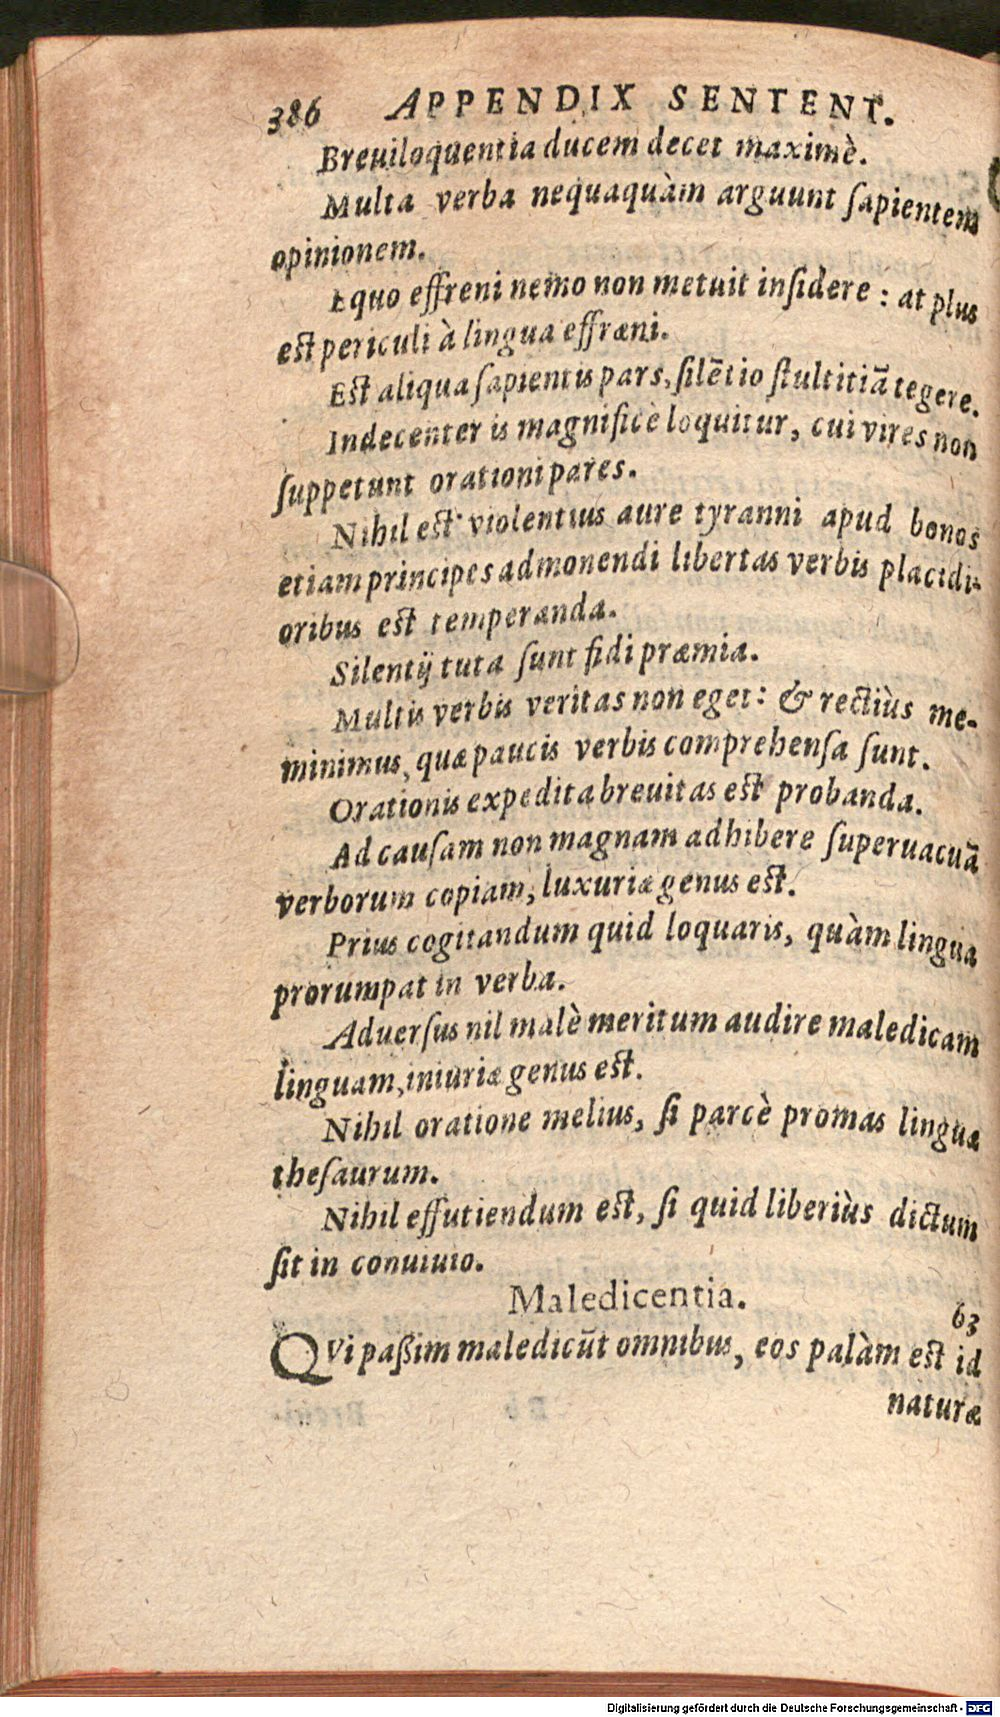 386 APPENDIX SENTENT.
Breuiloquentia ducem decet maximè.
Multa verba nequaquàm arguunt ſapientem
opinionem.
Equo effreni nemo non metuit inſidere : at plus
est periculi à lingua effræni.
Est aliqua ſapientis pars, ſilētio ſtultitiā tegere.
Indecenter is magnificè loquitur, cui vires non
ſuppetunt orationi pares.
Nihil est violentius aure tyranni apud bonos
etiam principes admonendi libertas verbis placidi-
oribus est temperanda.
Silentij tuta ſunt fidi præmia.
Multis verbis veritas non eget: & rectiùs me-
minimus, quæ paucis verbis comprehenſa ſunt.
Orationis expedita breuitas est probanda.
Ad cauſam non magnam adhibere ſuperuacuā
verborum copiam, luxuriæ genus est.
Prius cogitandum quid loquaris, quàm lingua
prorumpat in verba.
Aduerſus nil malè meritum audire maledicam
linguam, iniuriæ genus est.
Nihil oratione melius, ſi parcè promas linguæ
theſaurum.
Nihil effutiendum est, ſi quid liberiùs dictum
ſit in conuiuio.
Maledicentia. 63
QVi paßim maledicūt omnibus, eos palàm est id
naturæ
Digitalisierung gefördert durch die Deutsche Forschungsgemeinschaft - DFG